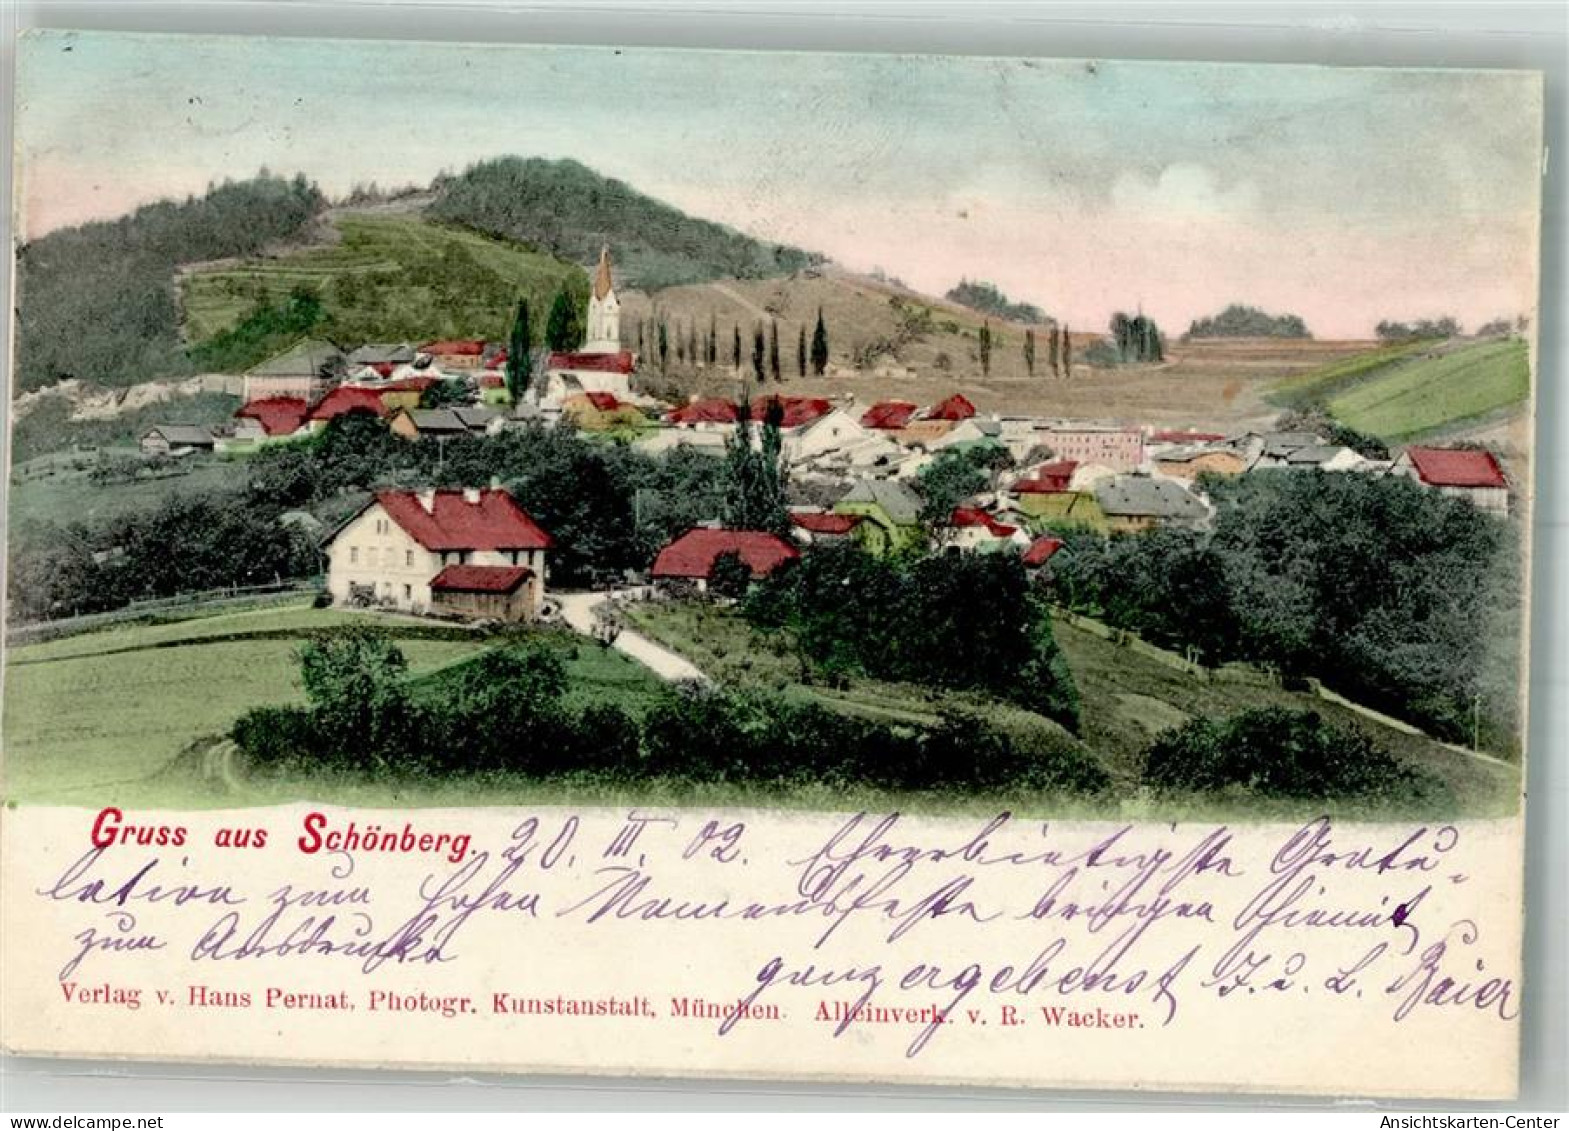 Gruss aus Schönberg. 20. III. 02. Ehrerbietigste Gratu-
lation zum hohen Namensfeste bringen hiemit
zum Ausdrucke
ganz ergebenst J. u. L. Baier
Verlag v. Hans Pernat, Photogr. Kunstanstalt, München. Alleinverk. v. R. Wacker.
Ansichtskarten-Center